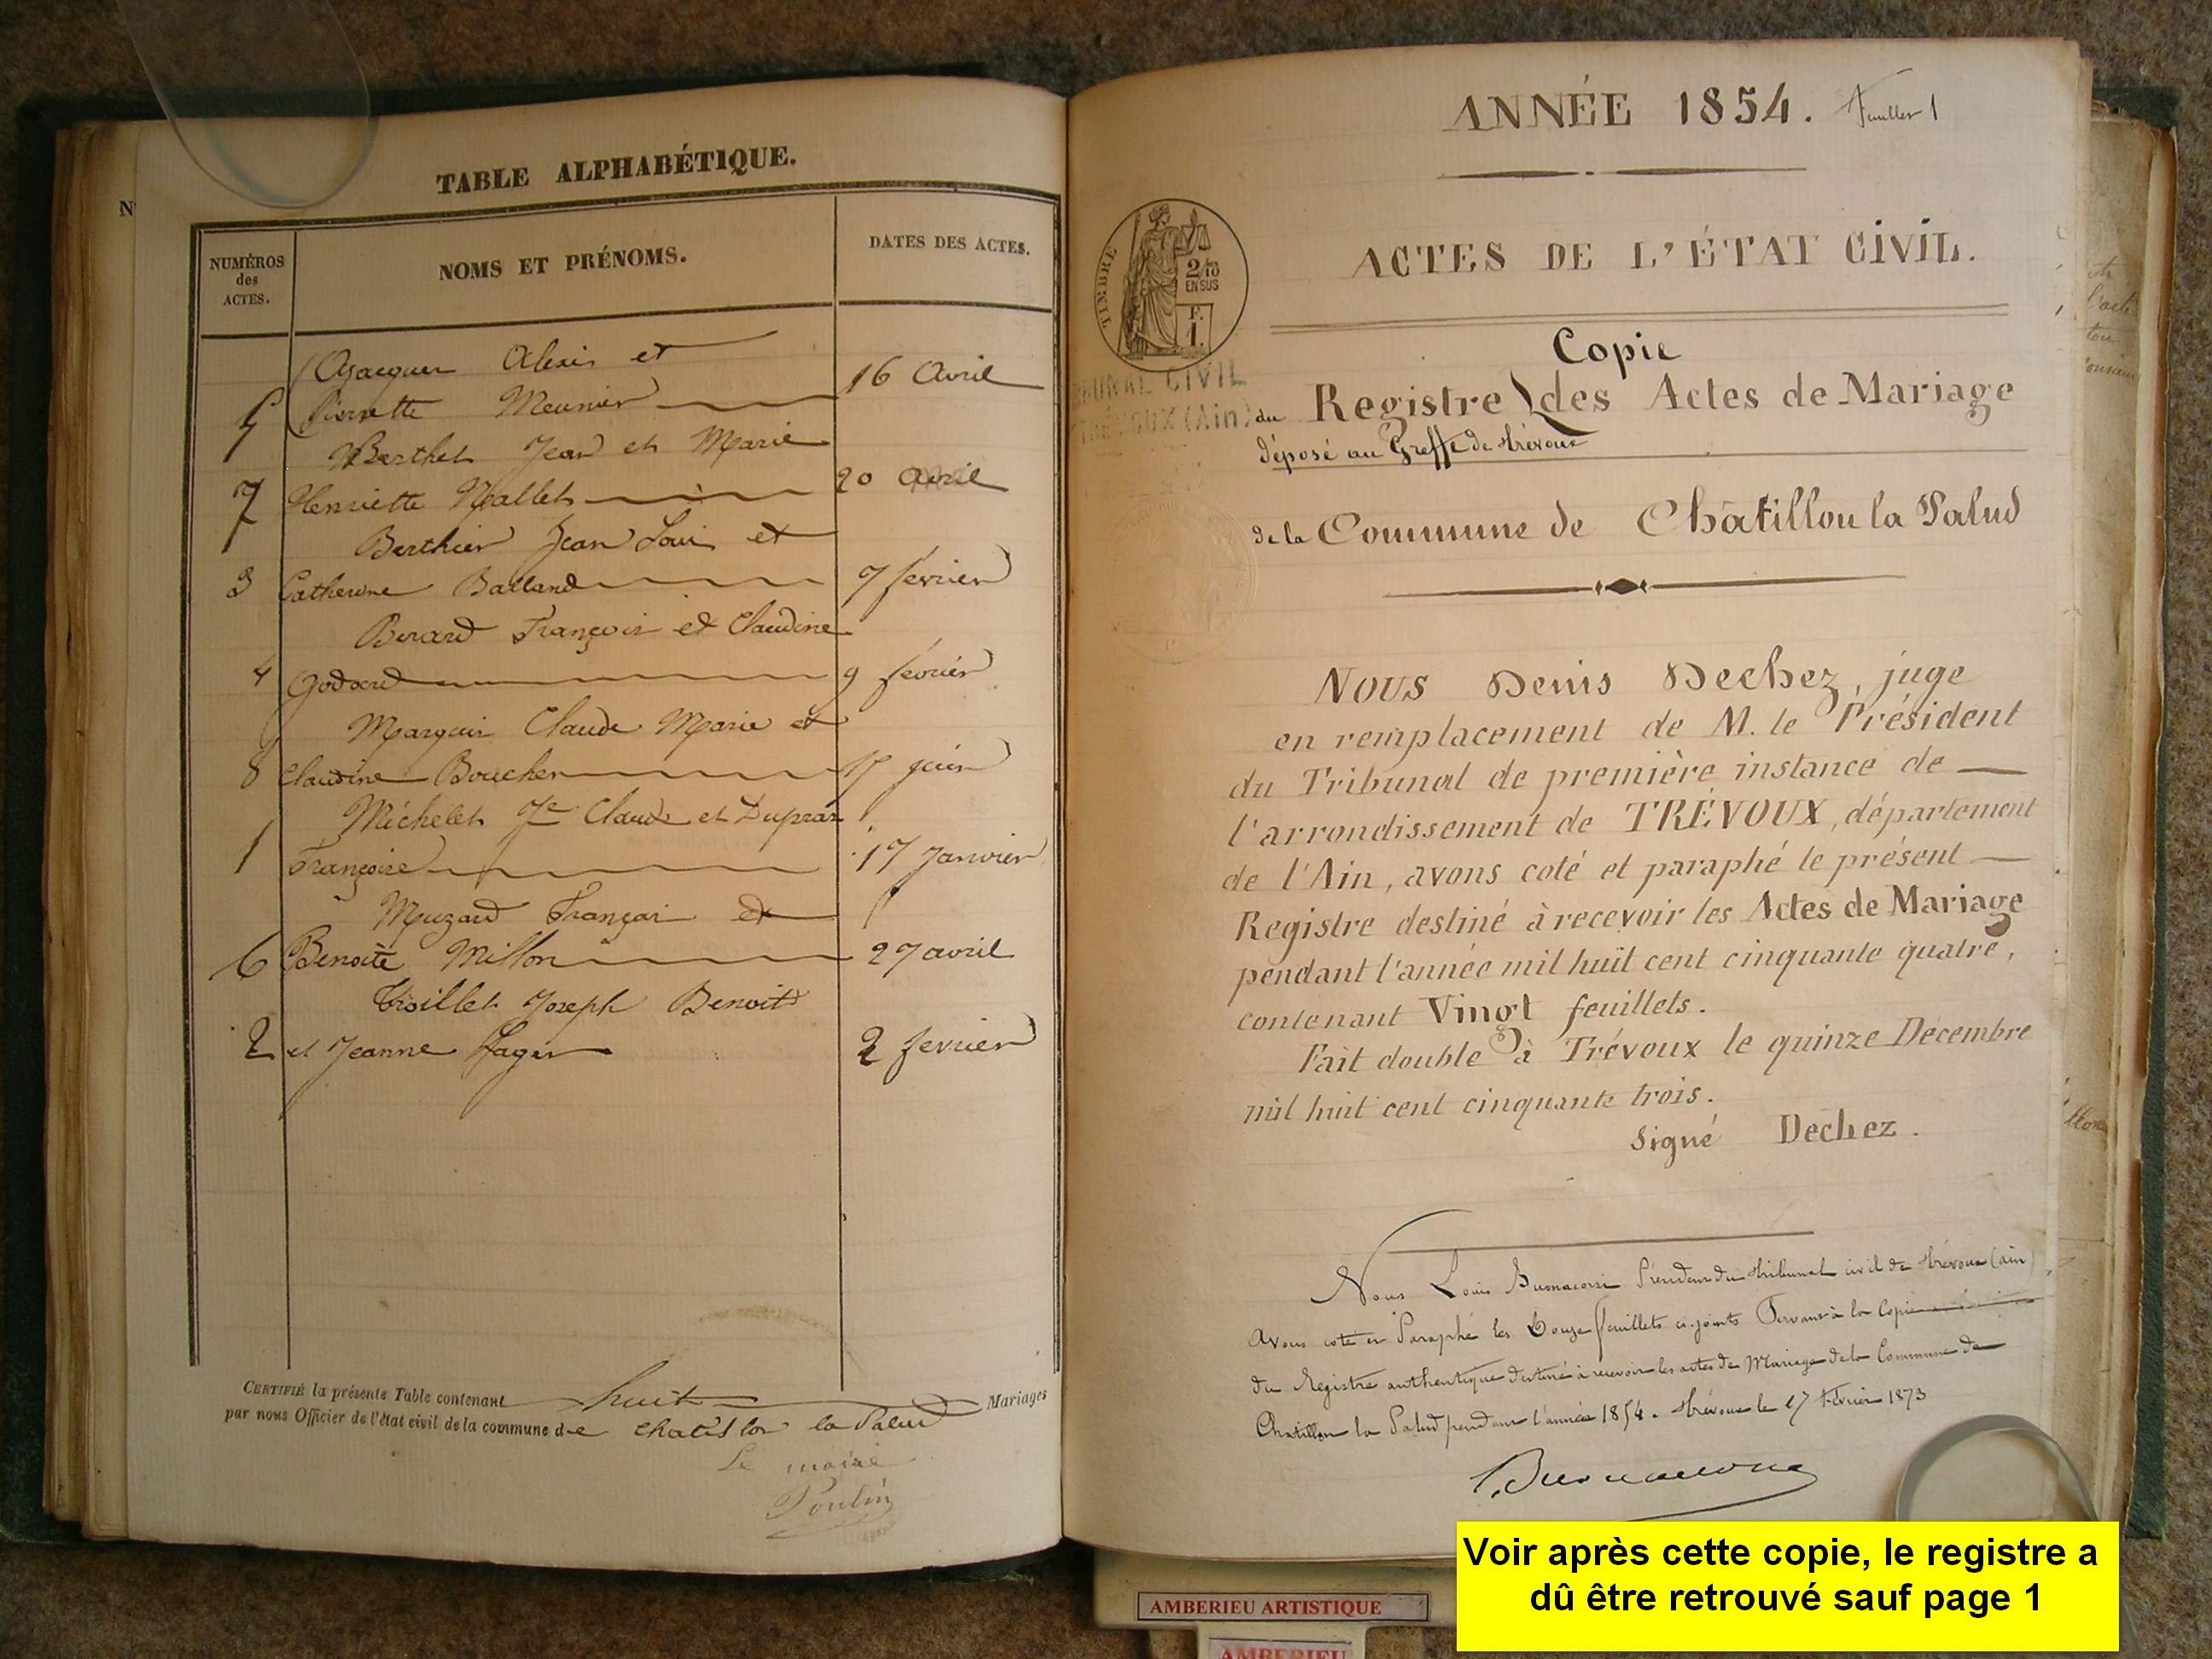 TABLE ALPHABÉTIQUE.
NUMÉROS
des
ACTES.
NOMS ET PRÉNOMS.
DATES DES ACTES.
Alexis et
5 Pierrette Meunier 16 Avril
Berthet Jean et Marie
7 Henriette Mallet 20 avril
Berthier Jean Louis et
3 Catherine Balland 7 fevrier
Berard François et Claudine
4 Godard 9 février
Marguin Claude Marie et
8 Claudine Boucher 15 juin
Michelet Claude et Dupras
1 Françoise 17 Janvier
Muzard François et
6 Benoite Millon 27 avril
Troillet Joseph Benoit
2 et Jeanne 2 fevrier
CERTIFIÉ la présente Table contenant huit Mariages
par nous Officier de l'état civil de la commune de chatillon la Palud
Le maire
Poulin
ANNÉE 1854. feuillet 1
ACTES DE L'ÉTAT CIVIL.
TIMBRE
2/10
EN SUS
F.
1.
TRIBUNAL CIVIL
TRÉVOUX (Ain)
Copie
du Registre des Actes de Mariage
déposé au Greffe de Trévoux
de la Commune de Châtillon la Palud
NOUS Denis Dechez, juge
en remplacement de M. le Président
du Tribunal de première instance de
l'arrondissement de TRÉVOUX, département
de l'Ain, avons coté et paraphé le présent
Registre destiné à recevoir les Actes de Mariage
pendant l'année mil huit cent cinquante quatre,
contenant Vingt feuillets.
Fait double à Trévoux le quinze Décembre
mil huit cent cinquante trois.
signé Dechez.
Nous Louis Buonacorsi Président du tribunal civil de trévoux (ain)
Avons coté et Paraphé les Douze feuillets ci-joints Servant à la Copie
du Registre authentique destiné à recevoir les actes de Mariage de la Commune de
Chatillon la Palud pendant l'année 1854. trévoux le 17 février 1873
Voir après cette copie, le registre a
dû être retrouvé sauf page 1
AMBERIEU ARTISTIQUE
AMBERIEU